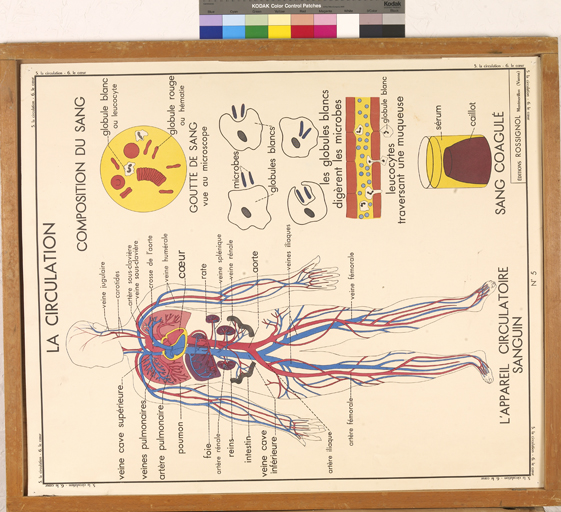 KODAK Color Control Patches
Kodak
5. la circulation - 6. le cœur
5. la circulation - 6. le cœur
LA CIRCULATION
COMPOSITION DU SANG
globule blanc
ou leucocyte
globule rouge
ou hématie
GOUTTE DE SANG
vue au microscope
microbes
globules blancs
les globules blancs
digèrent les microbes
globule blanc
leucocytes
traversant une muqueuse
sérum
caillot
SANG COAGULÉ
EDITIONS ROSSIGNOL Montmorillon (Vienne)
veine jugulaire
carotides
artère sous-clavière
veine sous-clavière
crosse de l'aorte
veine humérale
cœur
rate
veine splénique
veine rénale
aorte
veines iliaques
veine fémorale
veine cave supérieure
veines pulmonaires
artère pulmonaire
poumon
foie
artère rénale
reins
intestin
veine cave
inférieure
artère iliaque
artère fémorale
L'APPAREIL CIRCULATOIRE
SANGUIN
N° 5